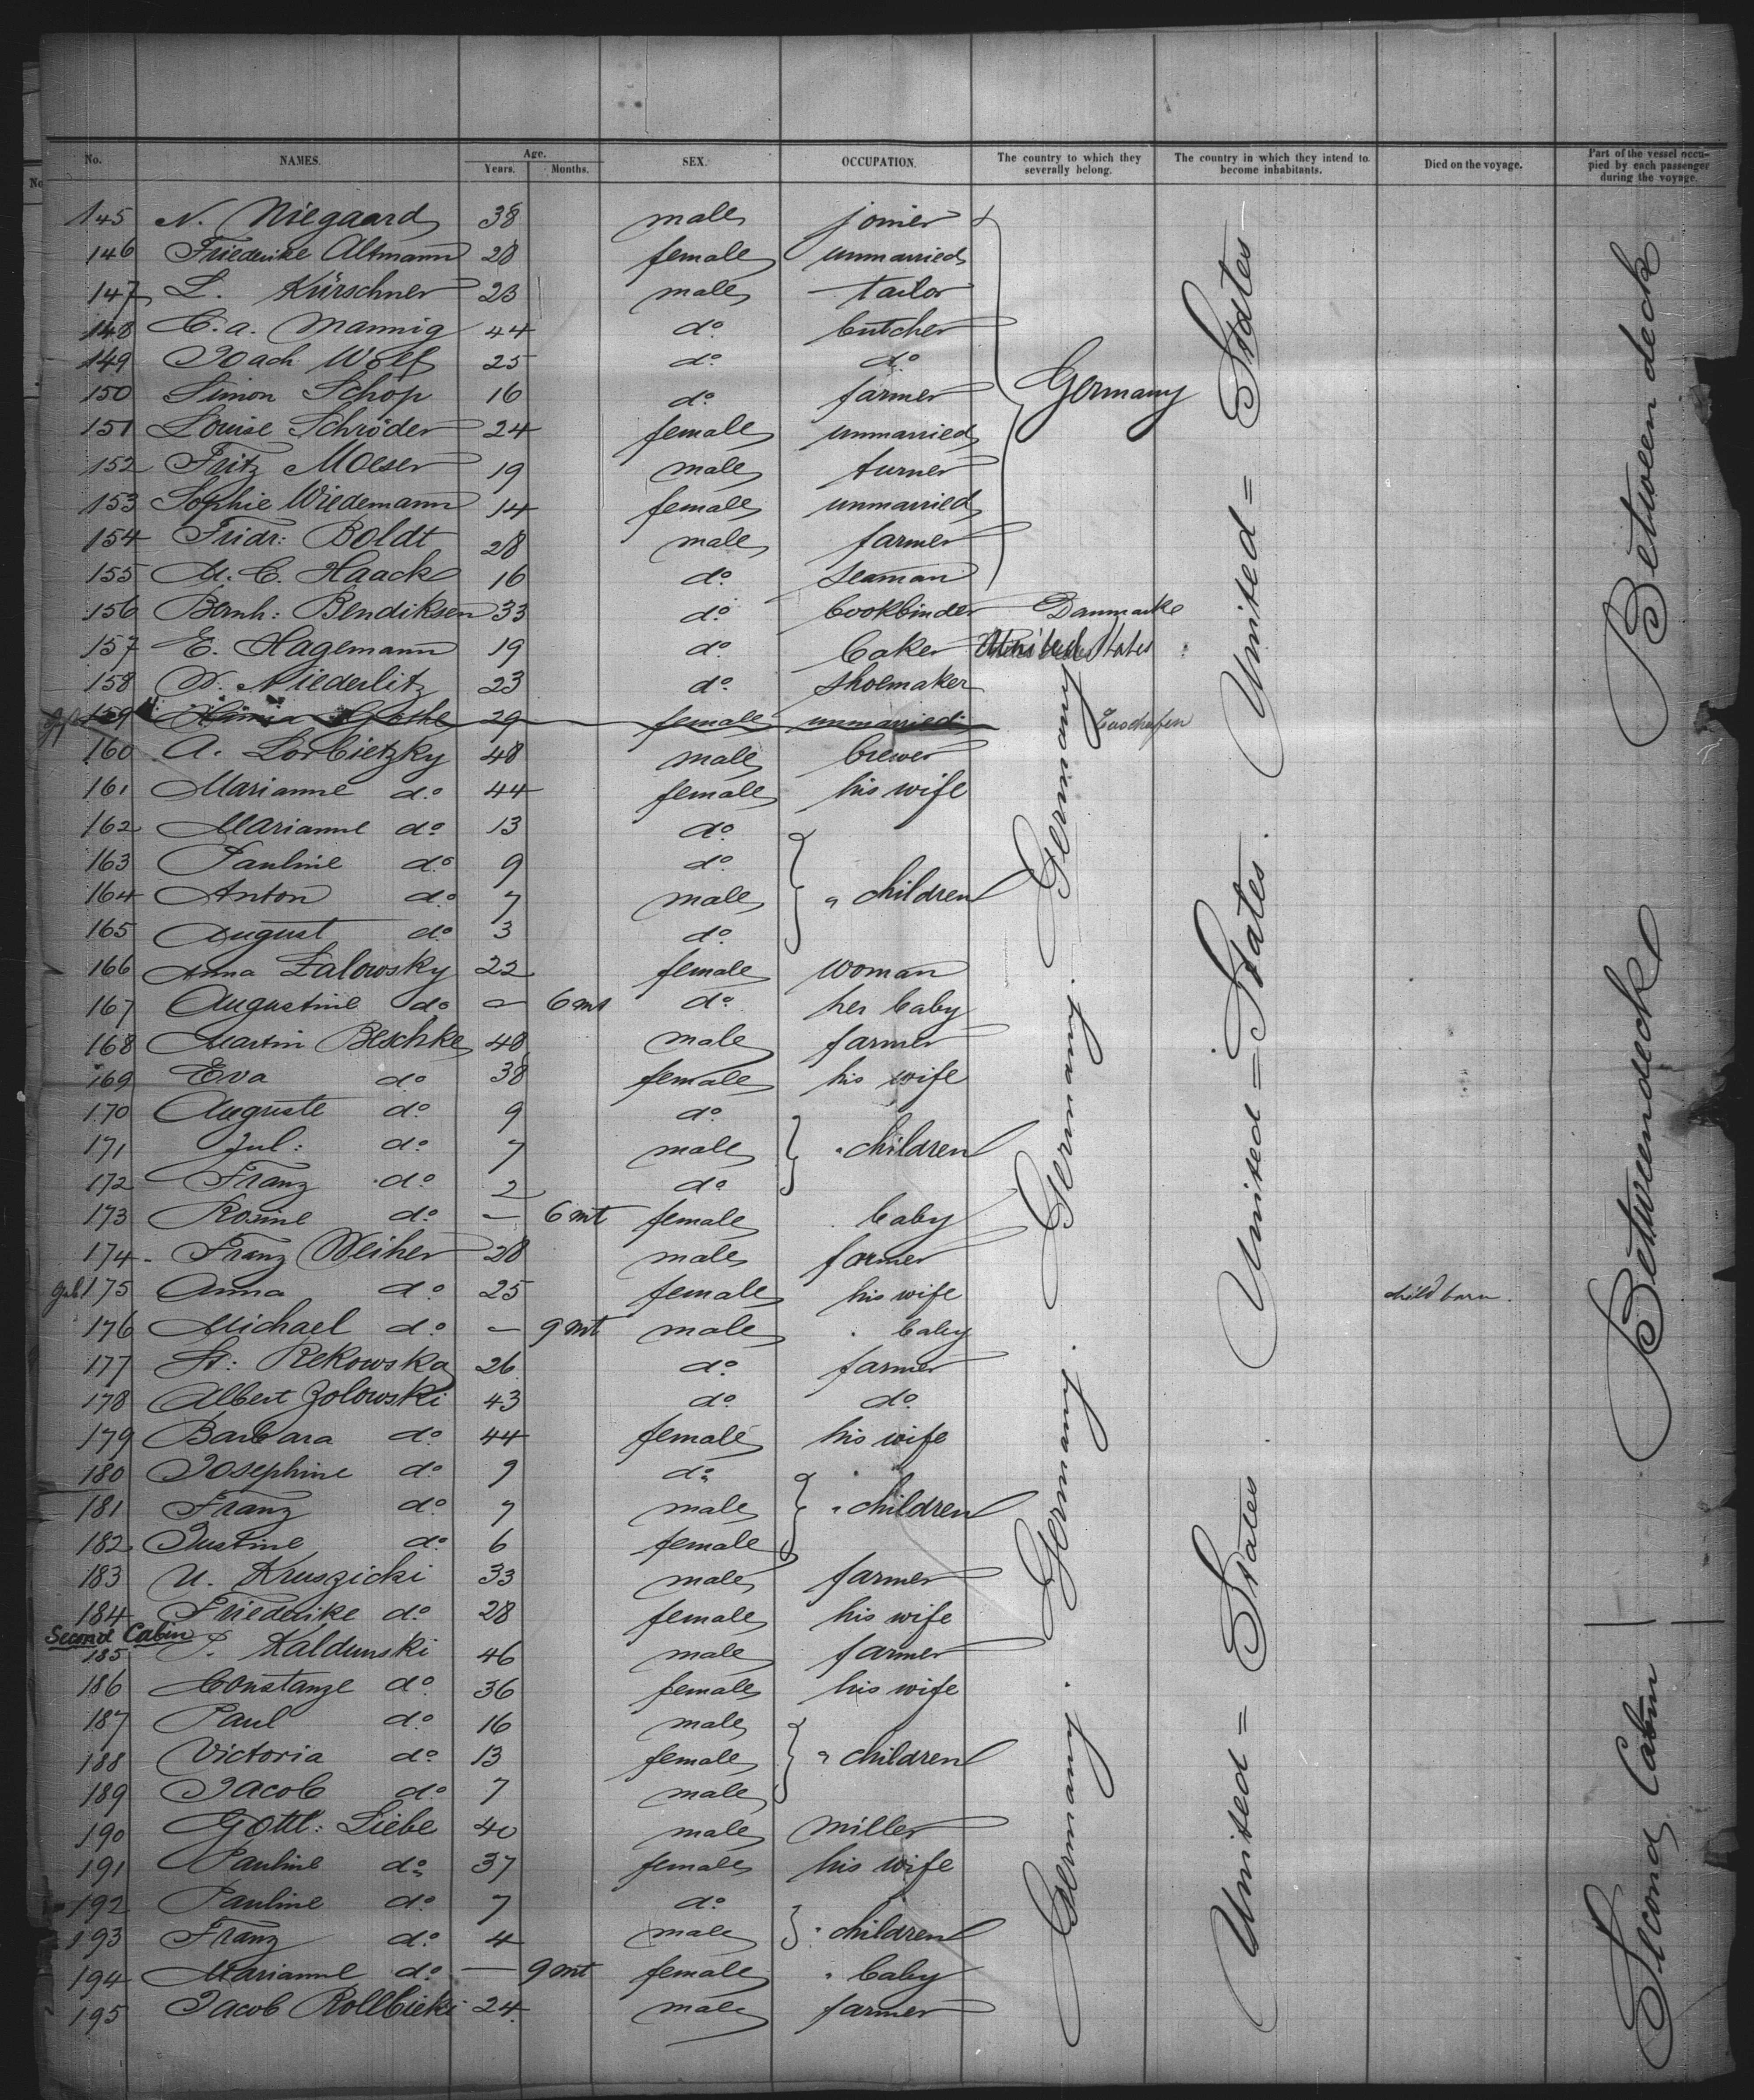 No. NAMES. Age. Years. Months. SEX. OCCUPATION. The country to which they severally belong. The country in which they intend to become inhabitants. Died on the voyage. Part of the vessel occupied by each passenger during the voyage.
145 N. Niegaard 38 male joiner
146 Friederike Altmann 28 female unmarried
147 L. Kürschner 23 male tailor
148 C. a. Mannig 44 do. butcher
149 Joach. Wolf 25 do. do.
150 Simon Schop 16 do. farmer Germany
151 Louise Schröder 24 female unmarried
152 Fritz Moeser 19 male turner
153 Sophie Wiedemann 14 female unmarried
154 Fridr: Boldt 28 male farmer
155 M. C. Haack 16 do. seaman
156 Bernh: Bendiksen 33 do. bookbinder Danmarke
157 E. Hagemann 19 do. baker United States
158 Niederlitz 23 do. shoemaker
159 29 female unmarried
160 A. Lorbietzky 48 male brewer
161 Marianne do. 44 female his wife
162 Marianne do. 13 do.
163 Pauline do. 9 do.
164 Anton do. 7 male " children
165 August do. 3 do.
166 Anna Zalowsky 22 female woman
167 Augustine do. — 6 mt do. her baby
168 Martin Beschke 40 male farmer
169 Eva do. 38 female his wife
170 Auguste do. 9 do.
171 Jul: do. 7 male " children
172 Franz do. 2 do.
173 Rosine do. — 6 mt female baby
174 Franz Weiher 28 male farmer
175 Anna do. 25 female his wife child born.
176 Michael do. — 9 mt male " baby
177 St: Rekowska 26 do. farmer
178 Albert Zolowski 43 do. do.
179 Barbara do. 44 female his wife
180 Josephine do. 9 do.
181 Franz do. 7 male " children
182 Justine do. 6 female
183 U. Kruszicki 33 male farmer
184 Friederike do. 28 female his wife
Second Cabin
185 Kaldunski 46 male farmer
186 Constanze do. 36 female his wife
187 Paul do. 16 male
188 Victoria do. 13 female " children
189 Jacob do. 7 male
190 Gottl: Liebe 40 male miller
191 Pauline do. 37 female his wife
192 Pauline do. 7 do.
193 Franz do. 4 male " children
194 Marianne do. — 9 mt female " baby
195 Jacob Rollbieki 24 male farmer
Germany. Germany. Germany. Germany.
United = States. United = States. United = States
Between deck
Betweendeck
Second Cabin